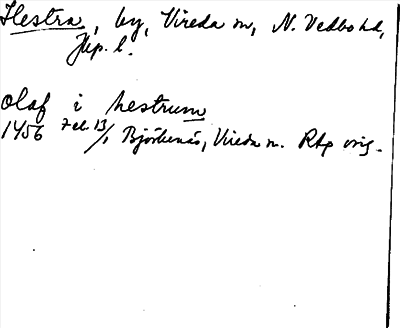 Hestra, by, Vireda sn, N. Vedbo hd,
Jkp. l.
olaf i hestrum
1456 Feb. 13/1 Björkenäs, Vireda sn. RAp orig.